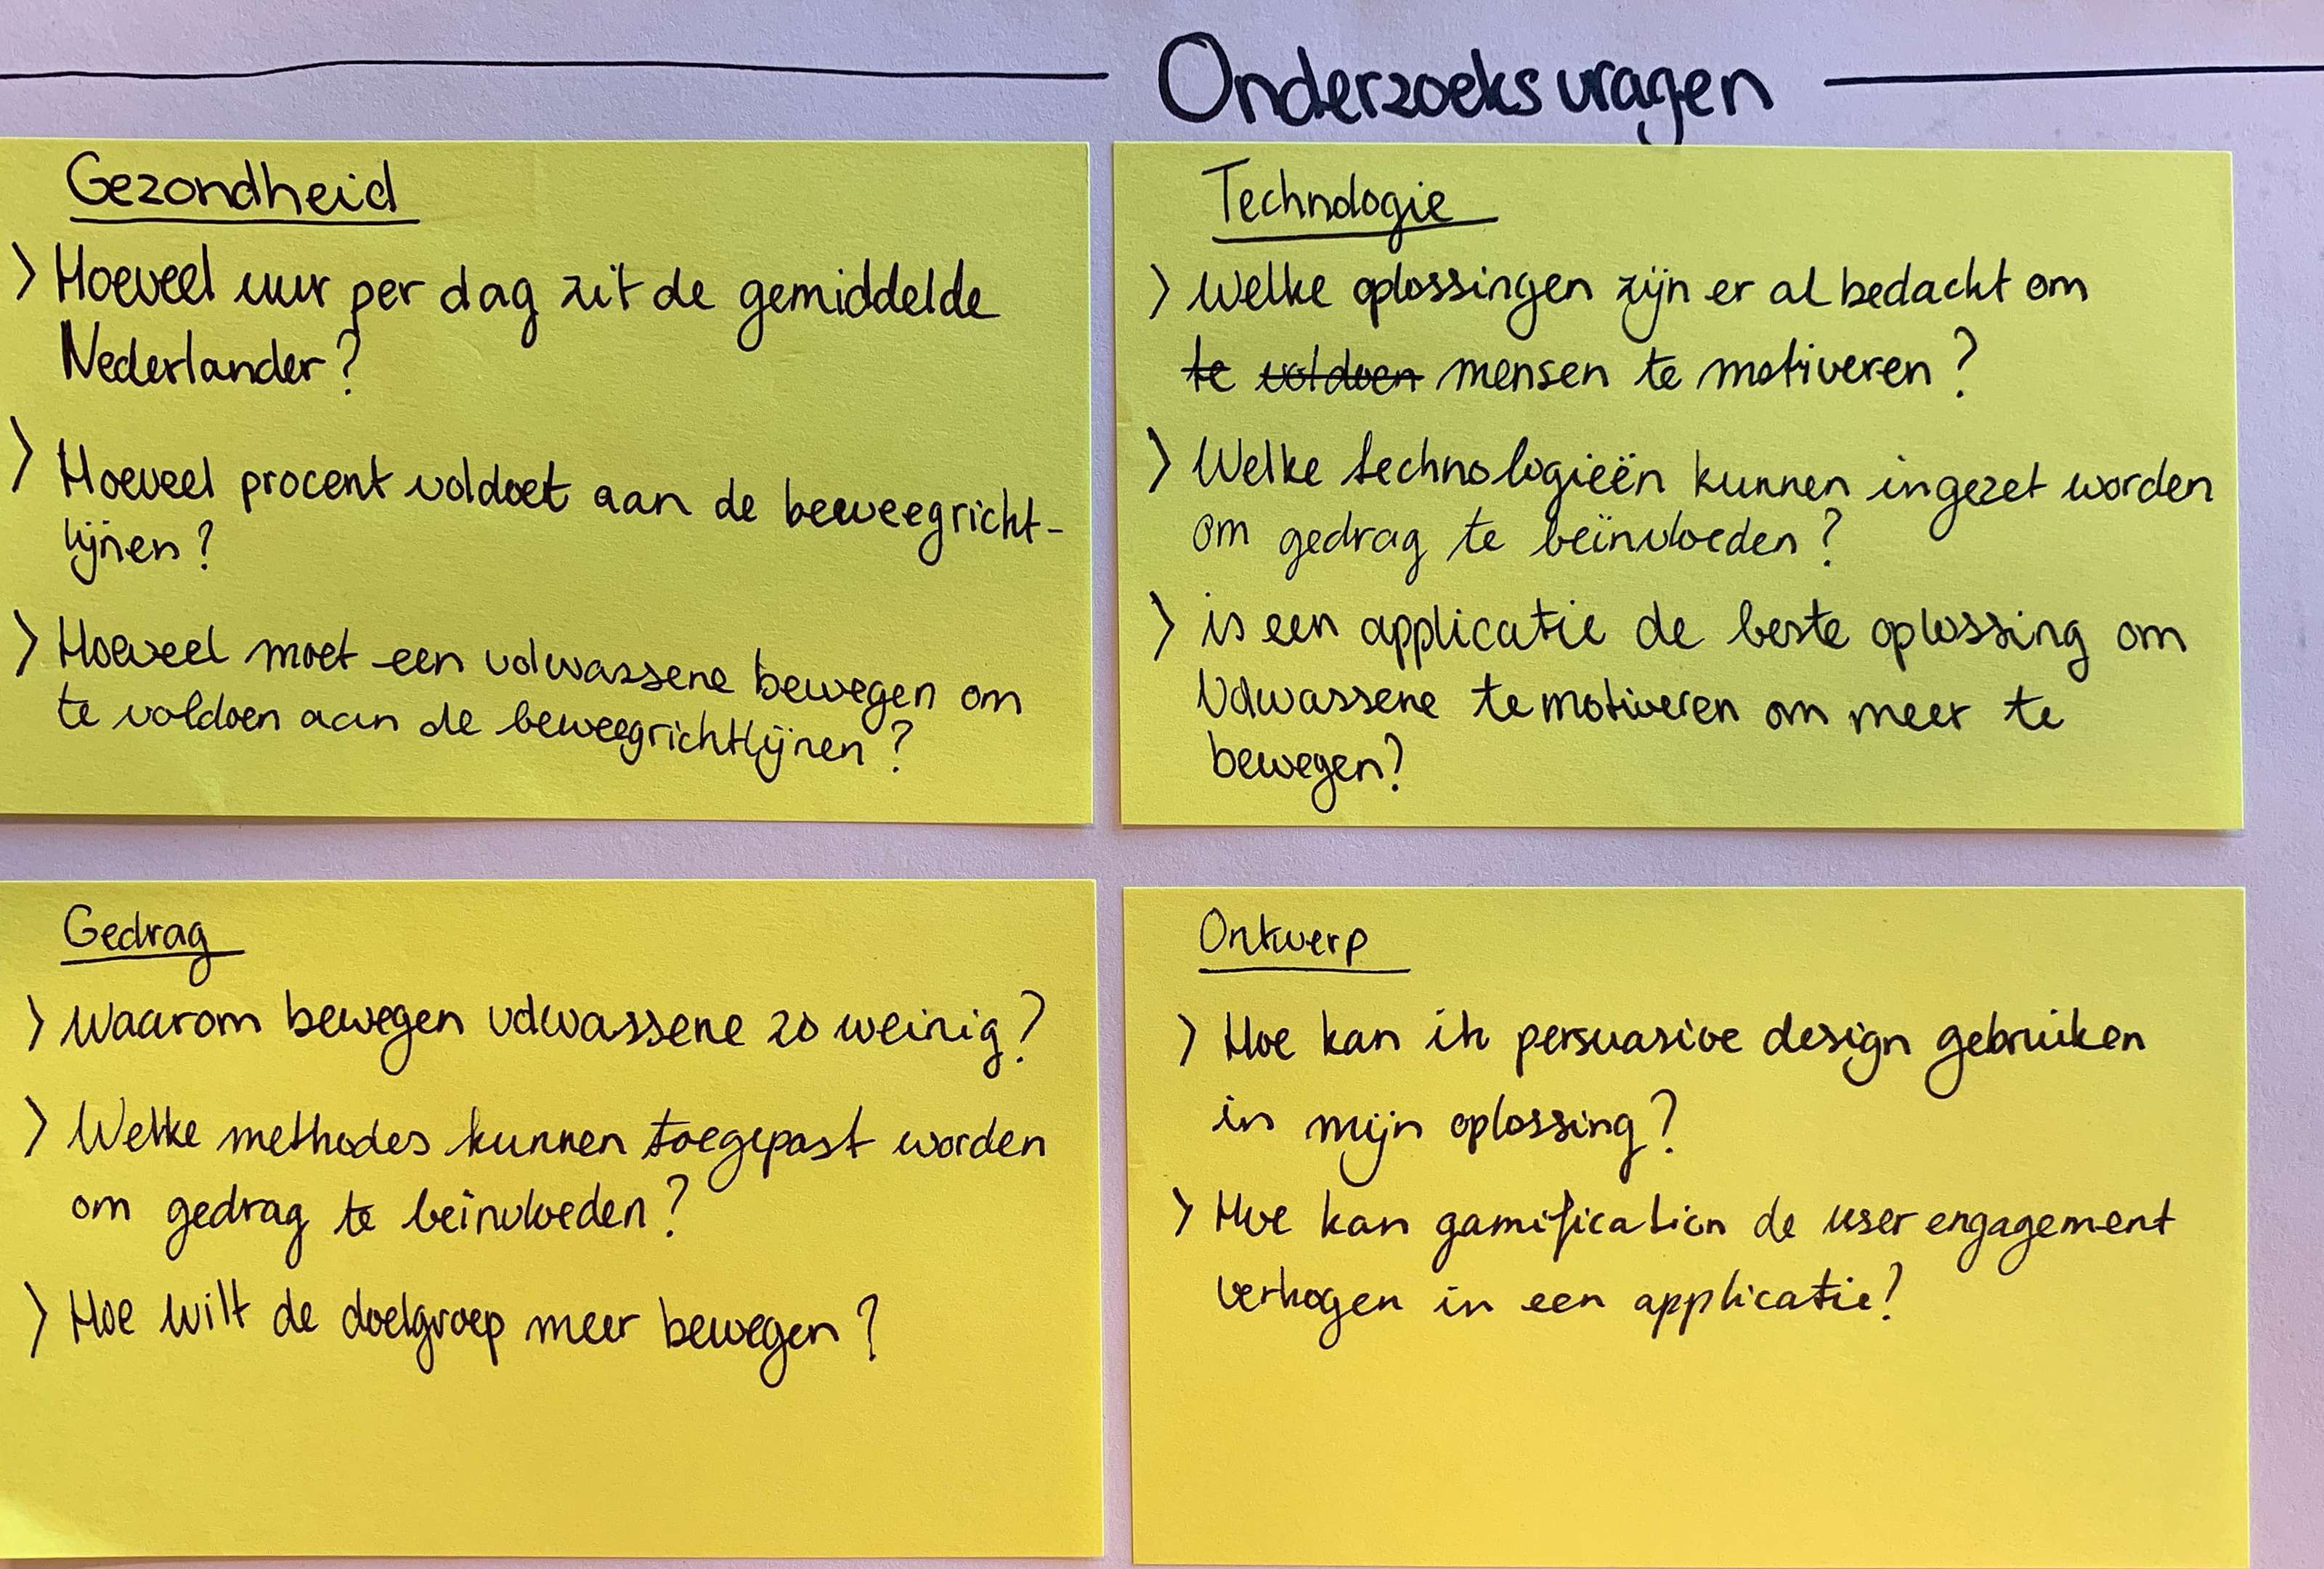 Onderzoeksvragen
Gezondheid
> Hoeveel uur per dag zit de gemiddelde
Nederlander?
> Hoeveel procent voldoet aan de beweegricht-
lijnen?
> Hoeveel moet een volwassene bewegen om
te voldoen aan de beweegrichtlijnen?
Technologie
> Welke oplossingen zijn er al bedacht om
te voldoen mensen te motiveren?
> Welke technologieën kunnen ingezet worden
om gedrag te beïnvloeden?
> is een applicatie de beste oplossing om
Volwassene te motiveren om meer te
bewegen?
Gedrag
> Waarom bewegen volwassene zo weinig?
> Welke methodes kunnen toegepast worden
om gedrag te beïnvloeden?
> Hoe wilt de doelgroep meer bewegen?
Ontwerp
> Hoe kan ik persuasive design gebruiken
in mijn oplossing?
> Hoe kan gamification de user engagement
verhogen in een applicatie?